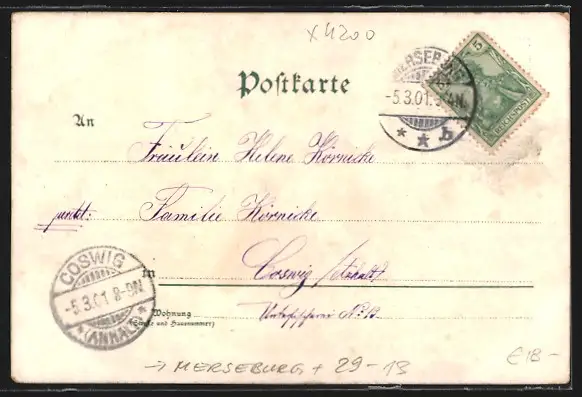 x4200
Postkarte
MERSEBURG
-5.3.01.
* * b
5
REICHSPOST
An
Fräulein Helene Körnicke
Familie Körnicke
in
Coswig /Anhalt
Wohnung
(Straße und Hausnummer)
No 13
COSWIG
-5.3.01 8-9N
* (ANHALT) *
→ MERSEBURG + 29-13
€18-